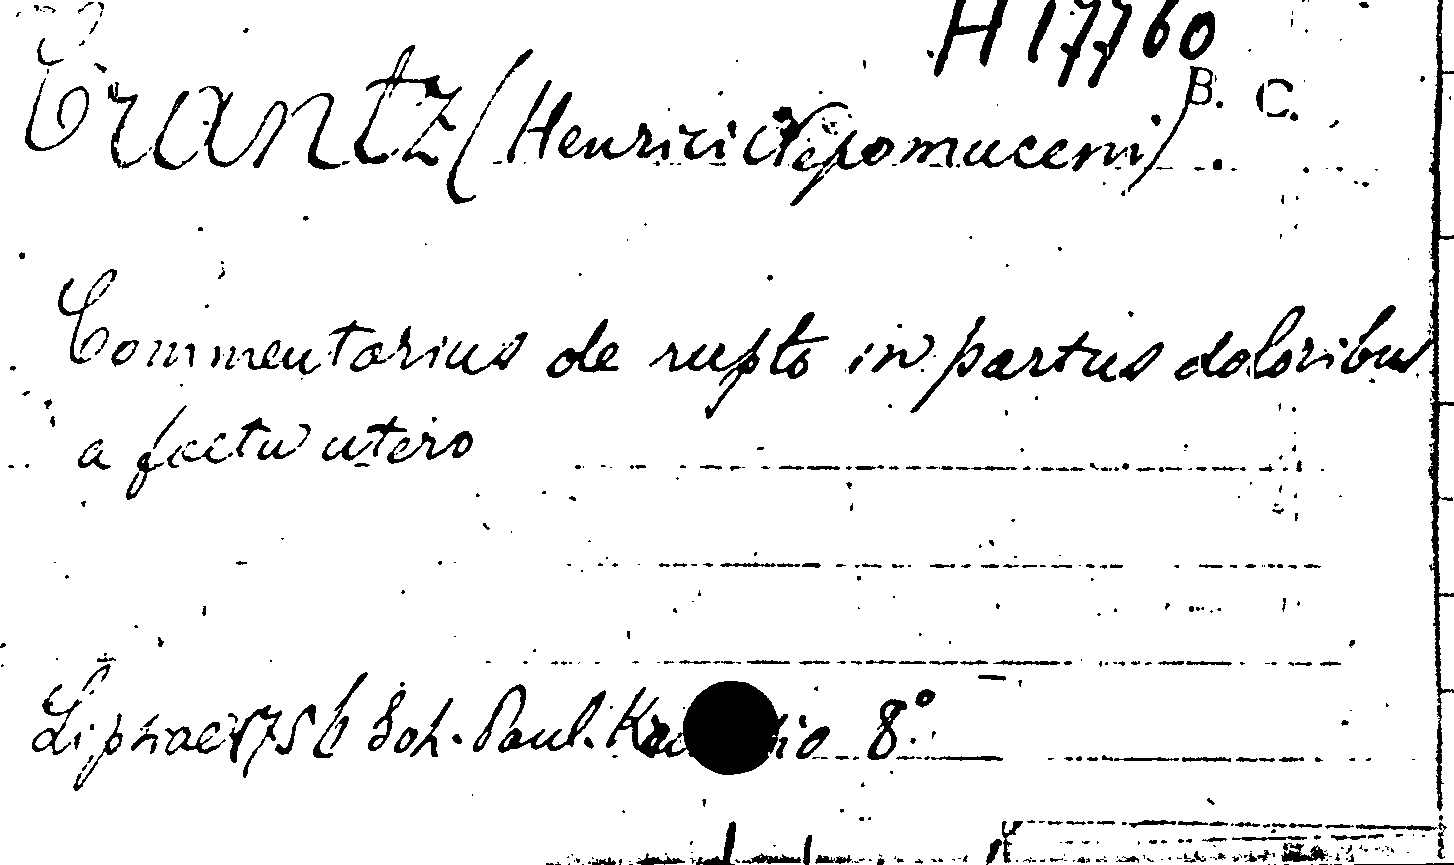 H 17760
B. C.
Crantz (Henrici Nepomuceni).
Commentarius de rupto in partus doloribus
a foetu utero
Lipsiae 1756 Joh. Paul. 8°